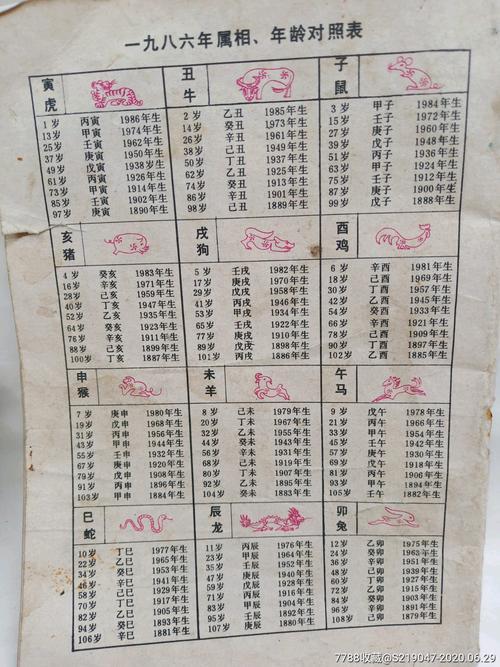 一九八六年属相、年龄对照表
寅虎
1岁 丙寅 1986年生
13岁 甲寅 1974年生
25岁 壬寅 1962年生
37岁 庚寅 1950年生
49岁 戊寅 1938年生
61岁 丙寅 1926年生
73岁 甲寅 1914年生
85岁 壬寅 1902年生
97岁 庚寅 1890年生
丑牛
2岁 乙丑 1985年生
14岁 癸丑 1973年生
26岁 辛丑 1961年生
38岁 己丑 1949年生
50岁 丁丑 1937年生
62岁 乙丑 1925年生
74岁 癸丑 1913年生
86岁 辛丑 1901年生
98岁 己丑 1889年生
子鼠
3岁 甲子 1984年生
15岁 壬子 1972年生
27岁 庚子 1960年生
39岁 戊子 1948年生
51岁 丙子 1936年生
63岁 甲子 1924年生
75岁 壬子 1912年生
87岁 庚子 1900年生
99岁 戊子 1888年生
亥猪
4岁 癸亥 1983年生
16岁 辛亥 1971年生
28岁 己亥 1959年生
40岁 丁亥 1947年生
52岁 乙亥 1935年生
64岁 癸亥 1923年生
76岁 辛亥 1911年生
88岁 己亥 1899年生
100岁 丁亥 1887年生
戌狗
5岁 壬戌 1982年生
17岁 庚戌 1970年生
29岁 戊戌 1958年生
41岁 丙戌 1946年生
53岁 甲戌 1934年生
65岁 壬戌 1922年生
77岁 庚戌 1910年生
89岁 戊戌 1898年生
101岁 丙戌 1886年生
酉鸡
6岁 辛酉 1981年生
18岁 己酉 1969年生
30岁 丁酉 1957年生
42岁 乙酉 1945年生
54岁 癸酉 1933年生
66岁 辛酉 1921年生
78岁 己酉 1909年生
90岁 丁酉 1897年生
102岁 乙酉 1885年生
申猴
7岁 庚申 1980年生
19岁 戊申 1968年生
31岁 丙申 1956年生
43岁 甲申 1944年生
55岁 壬申 1932年生
67岁 庚申 1920年生
79岁 戊申 1908年生
91岁 丙申 1896年生
103岁 甲申 1884年生
未羊
8岁 己未 1979年生
20岁 丁未 1967年生
32岁 乙未 1955年生
44岁 癸未 1943年生
56岁 辛未 1931年生
68岁 己未 1919年生
80岁 丁未 1907年生
92岁 乙未 1895年生
104岁 癸未 1883年生
午马
9岁 戊午 1978年生
21岁 丙午 1966年生
33岁 甲午 1954年生
45岁 壬午 1942年生
57岁 庚午 1930年生
69岁 戊午 1918年生
81岁 丙午 1906年生
93岁 甲午 1894年生
105岁 壬午 1882年生
巳蛇
10岁 丁巳 1977年生
22岁 乙巳 1965年生
34岁 癸巳 1953年生
46岁 辛巳 1941年生
58岁 己巳 1929年生
70岁 丁巳 1917年生
82岁 乙巳 1905年生
94岁 癸巳 1893年生
106岁 辛巳 1881年生
辰龙
11岁 丙辰 1976年生
23岁 甲辰 1964年生
35岁 壬辰 1952年生
47岁 庚辰 1940年生
59岁 戊辰 1928年生
71岁 丙辰 1916年生
83岁 甲辰 1904年生
95岁 壬辰 1892年生
107岁 庚辰 1880年生
卯兔
12岁 乙卯 1975年生
24岁 癸卯 1963年生
36岁 辛卯 1951年生
48岁 己卯 1939年生
60岁 丁卯 1927年生
72岁 乙卯 1915年生
84岁 癸卯 1903年生
96岁 辛卯 1891年生
108岁 己卯 1879年生
7788收藏@S219047-2020.06.29